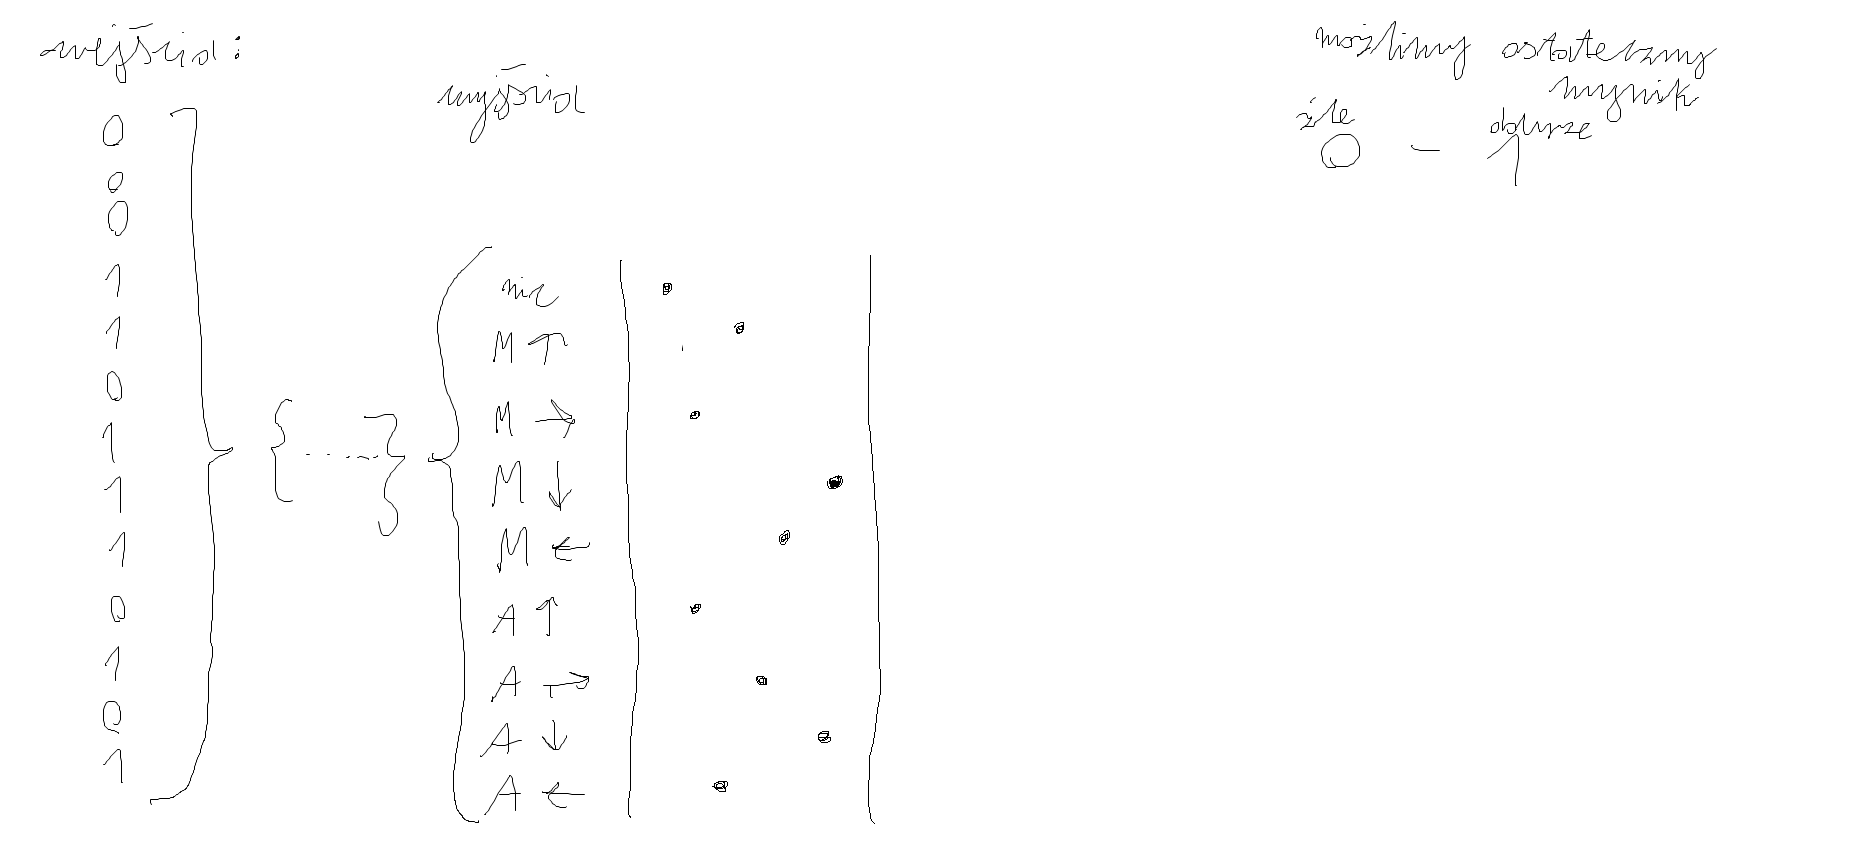 wejścia:
0
0
0
1
1
0
1
1
1
0
1
0
1
{.....}
wyjścia
nic
M ↑
M →
M ↓
M ←
A ↑
A →
A ↓
A ←
możliwy ostateczny
wynik
źle dobrze
0 – 1